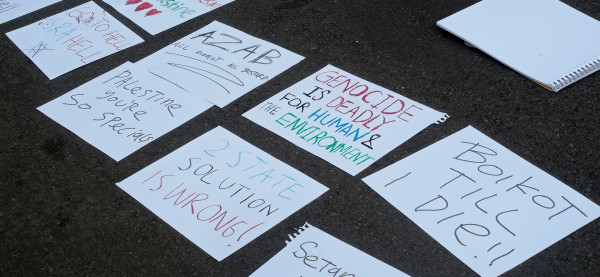 TO HELL
HELL
AZAB
Palestine
you're
So specials
GENOCIDE
IS DEADLY
FOR HUMAN &
THE ENVIRONMENT
2 STATE
SOLUTION
IS WRONG!
BOIKOT
TILL
I DIE!!
Setan